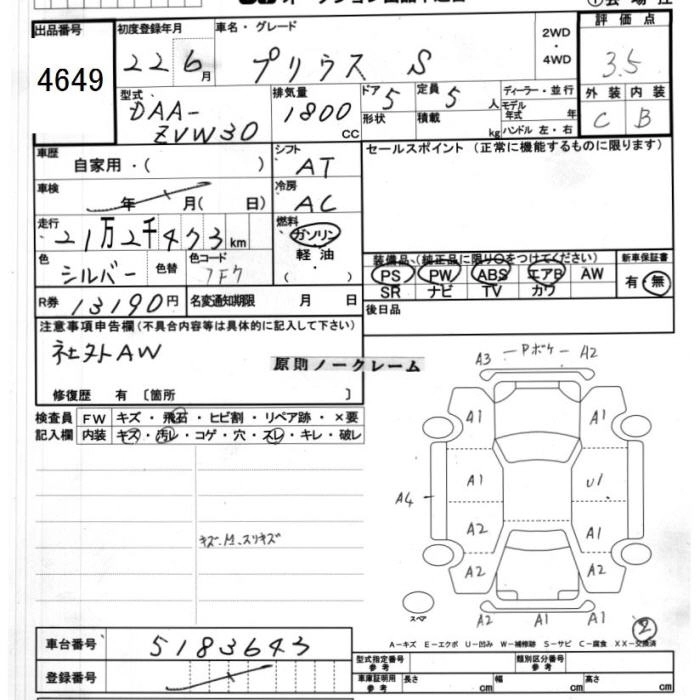 オークション出品申込書
出品番号 4649
初度登録年月 22 6月
車名・グレード プリウス S
2WD・4WD
評価点 3.5
外装 C 内装 B
型式 DAA-ZVW30
排気量 1800 CC
ドア 5 形状
定員 5 人 積載 kg
ディーラー・並行
モデル年式 年
ハンドル 左・右
車歴 自家用・( )
シフト AT
セールスポイント(正常に機能するものに限ります)
車検 年 月( 日)
冷房 AC
走行 21万2千473km
燃料 ガソリン 軽油・( )
色 シルバー 色替 色コード 1F7
装備品(純正品に限り〇をつけてください)
PS PW ABS エアB AW
SR ナビ TV カワ
新車保証書 有・無
R券 13190円
名変通知期限 月 日
後日品
注意事項申告欄(不具合内容等は具体的に記入して下さい)
社外AW
原則ノークレーム
修復歴 有〔箇所 〕
検査員記入欄
FW キズ・飛石・ヒビ割・リペア跡・×要
内装 キズ・汚レ・コゲ・穴・スレ・キレ・破レ
キズ・凹・スリキズ
A3 Pボケ A2
A1 A1
A4 A1 U1
A2 A1
A2 A2
スペア A2 A1 A1 2
A-キズ E-エクボ U-凹み W-補修跡 S-サビ C-腐食 XX-交換済
車台番号 5183643
登録番号
型式指定番号 参考
類別区分番号 参考
車庫証明用 参考 長さ cm 幅 cm 高さ cm